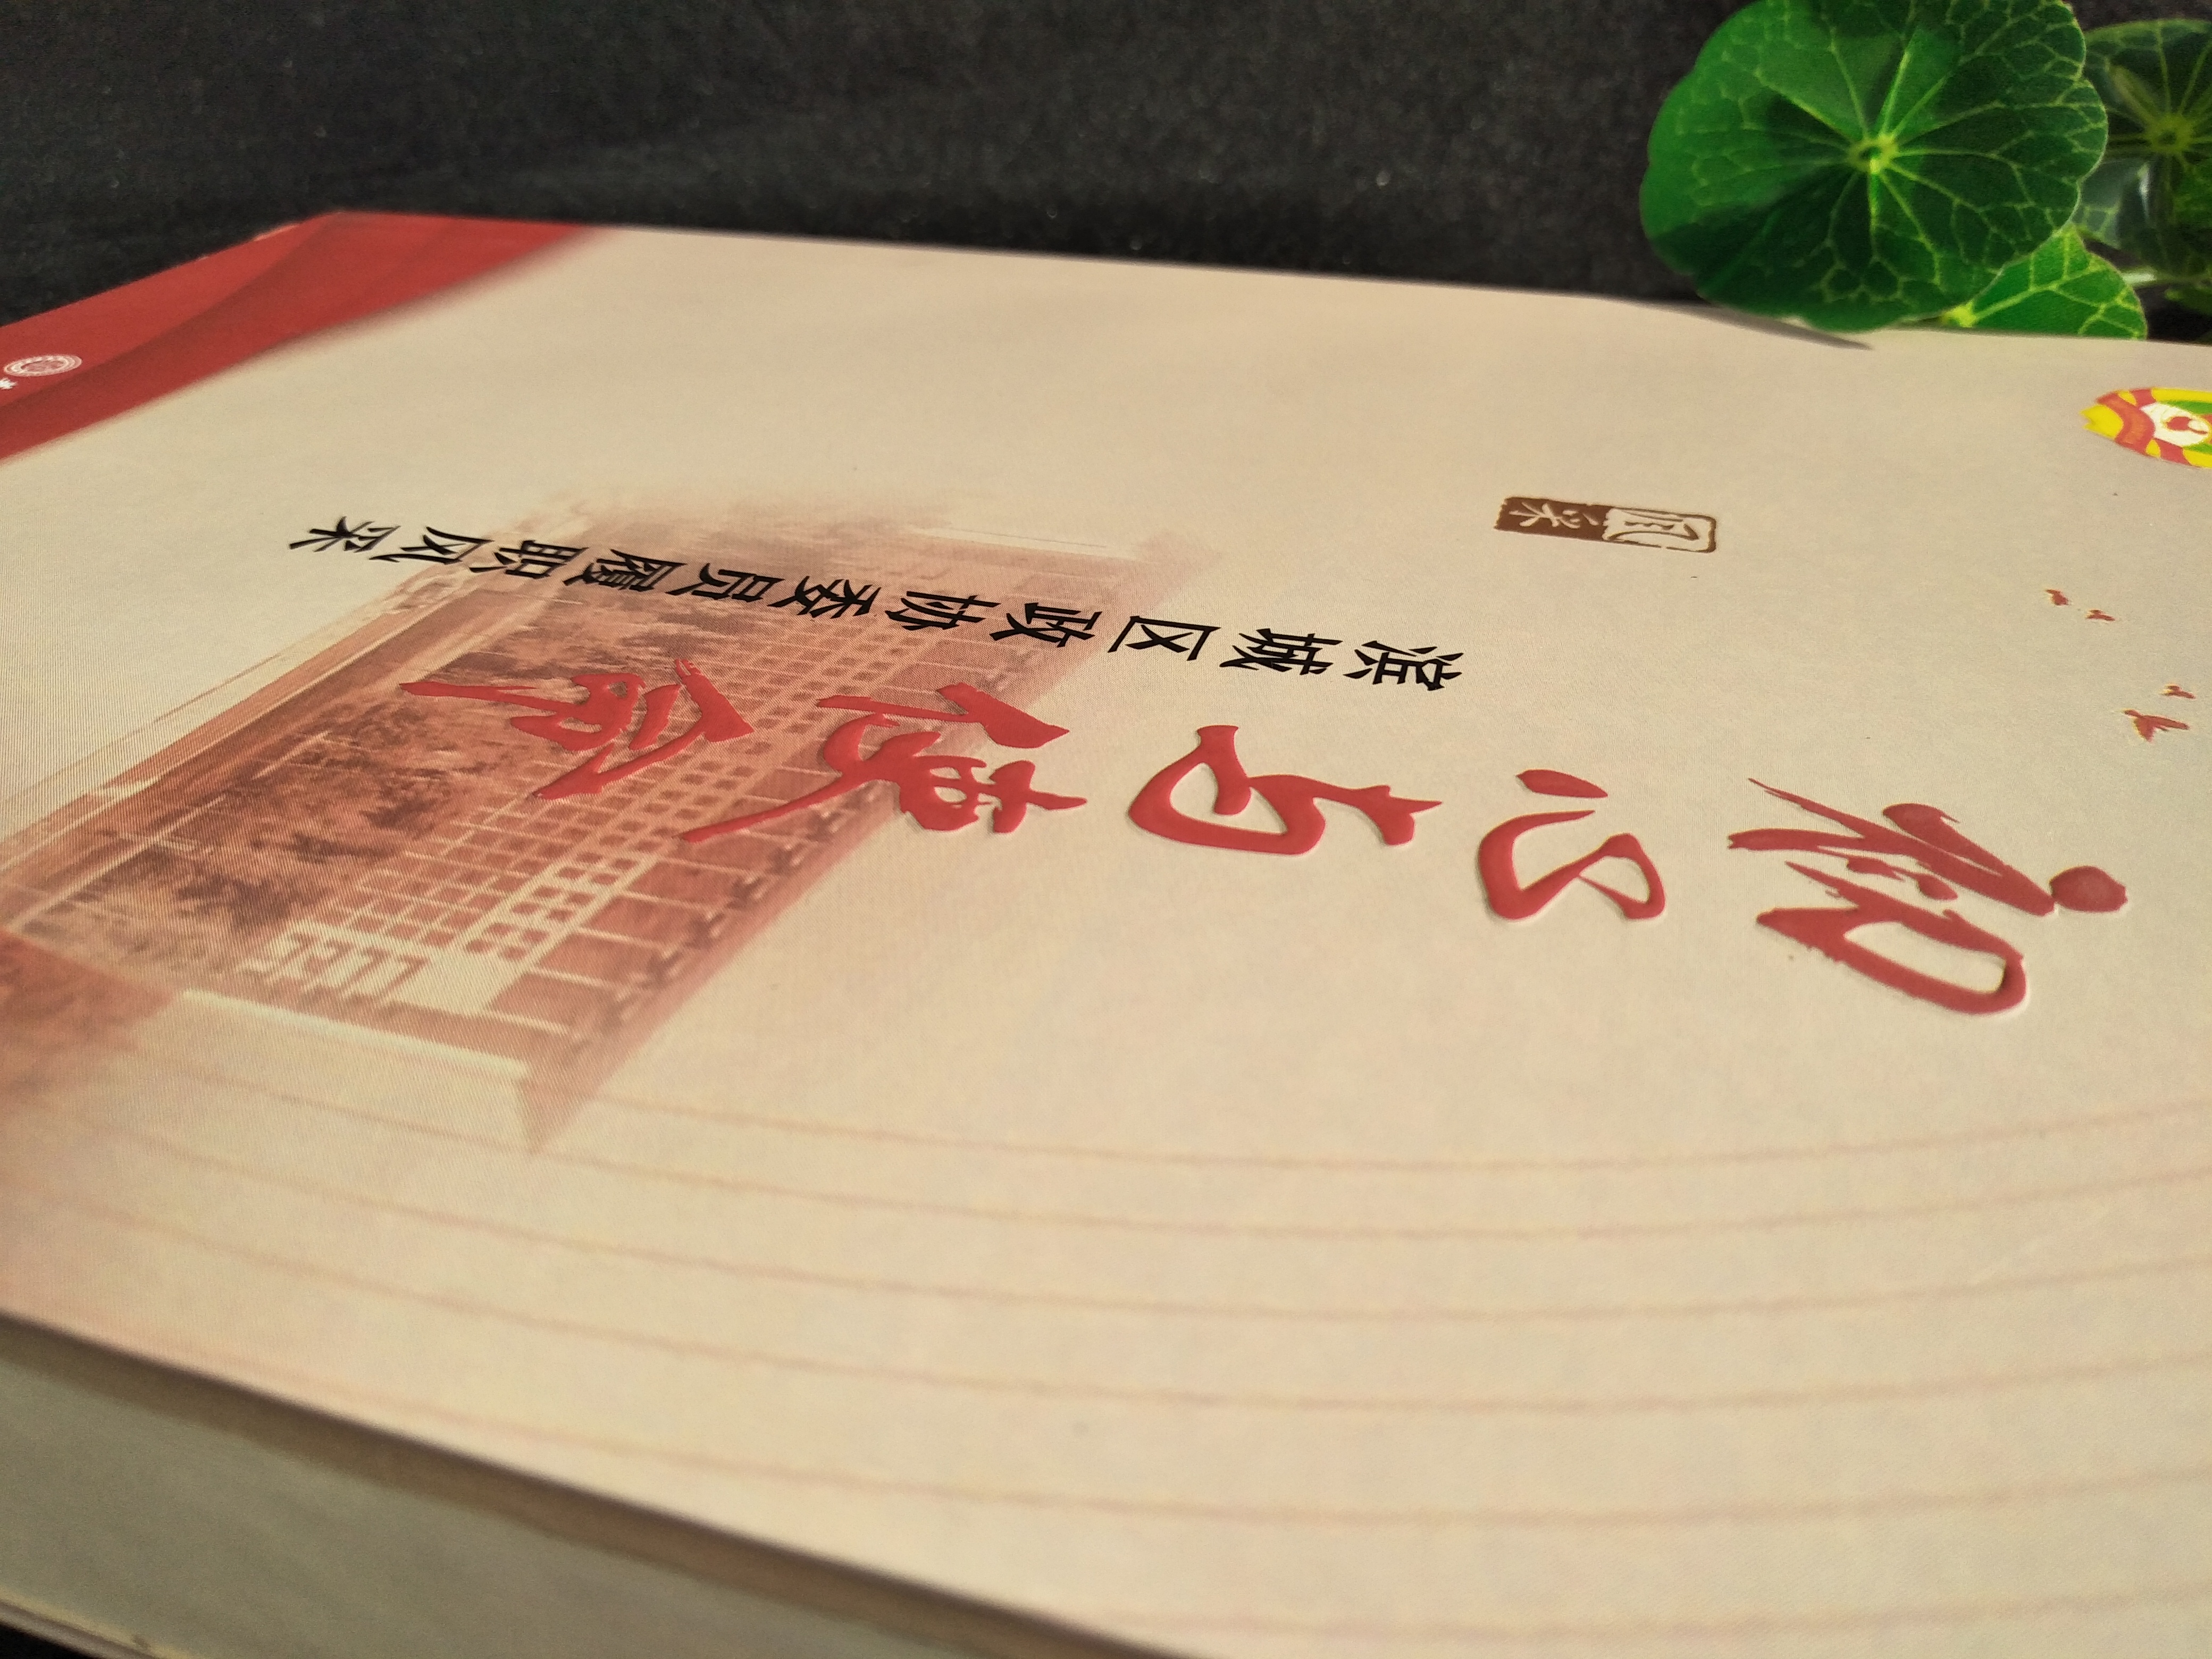 初心与使命
滨城区政协委员履职风采
风采